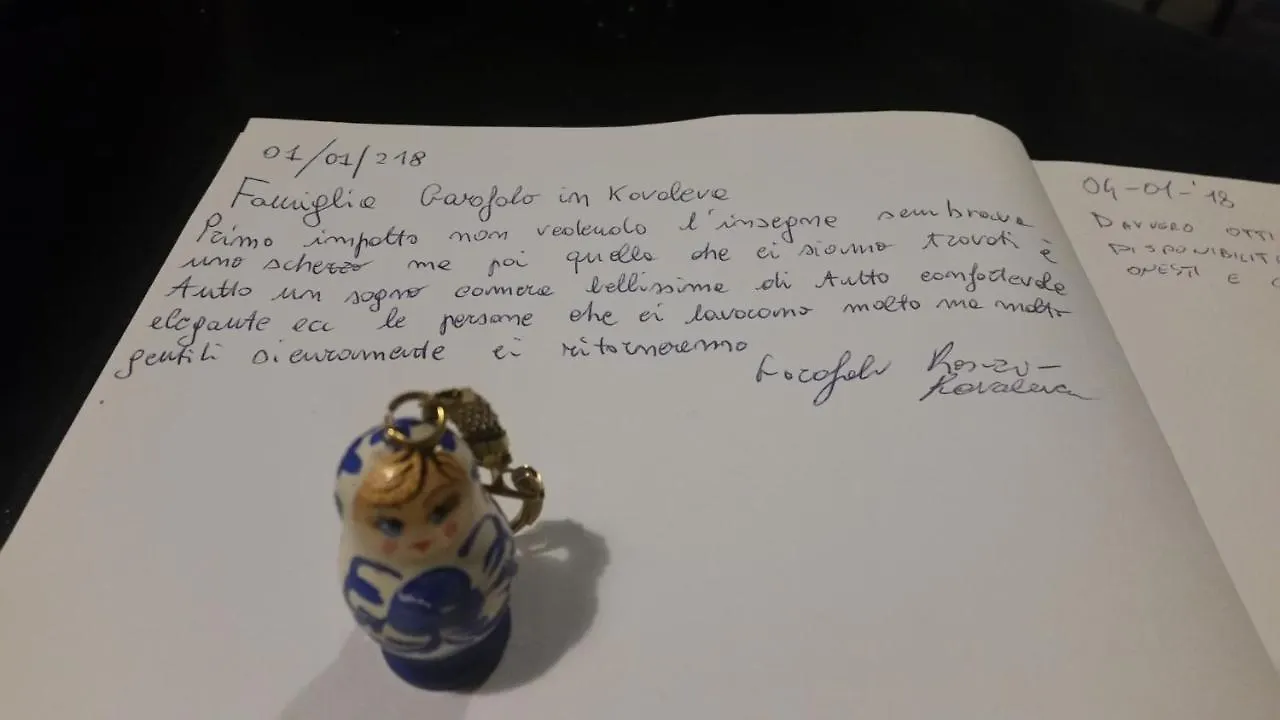 01/01/218
Famiglia Garofolo in Kovaleva
Primo impatto non vedendo l'insegne sembrava
uno scherzo ma poi quello che ci siamo trovati è
tutto un sogno camera bellissima di tutto confortevole
elegante ecc le persone che ci lavorano molto ma molto
gentili sicuramente ci ritorneremo
Garofolo
Kovaleva
04-01-'18
DAVVERO OTTI
DISPONIBILIT
ONESTI E